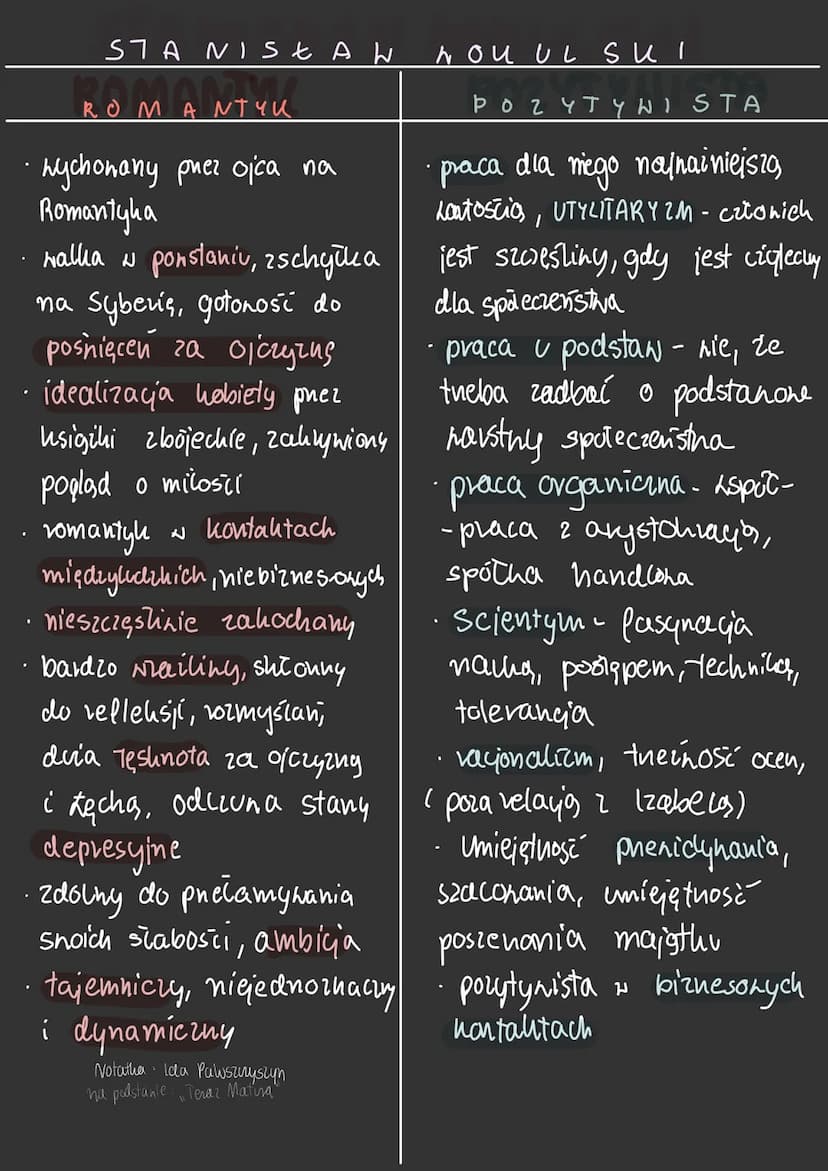 STANISŁAW WOKULSKI
ROMANTYK
· wychowany przez ojca na
Romantyka
· walka w powstaniu, zschyłka
na Syberię, gotowość do
poświęceń za ojczyznę
· idealizacja kobiety przez
książki zbójeckie, zakrzywiony
pogląd o miłości
· romantyk w kontaktach
międzyludzkich, niebiznesowych
· nieszczęśliwie zakochany
· bardzo wrażliwy, skłonny
do refleksji, rozmyślań,
tęsknota za ojczyzną
i Łęcką, odczuwa stany
depresyjne
· zdolny do przełamywania
swoich słabości, ambicja
· tajemniczy, niejednoznaczny
i dynamiczny
Notatka · Ida
na podstawie: „Teraz Matura"
POZYTYWISTA
· praca dla niego najważniejszą
wartością, UTYLITARYZM - człowiek
jest szczęśliwy, gdy jest
dla społeczeństwa
· praca u podstaw - wie, że
trzeba zadbać o podstawowe
warstwy społeczeństwa
· praca organiczna - współ-
-praca z arystokracją,
spółka handlowa
· Scjentyzm - fascynacja
nauką, postępem, techniką,
tolerancja
· racjonalizm, trzeźwość ocen,
(poza relacją z Izabelą)
· Umiejętność przewidywania,
szacowania, umiejętność
poszerzania majątku
· pozytywista w biznesowych
kontaktach